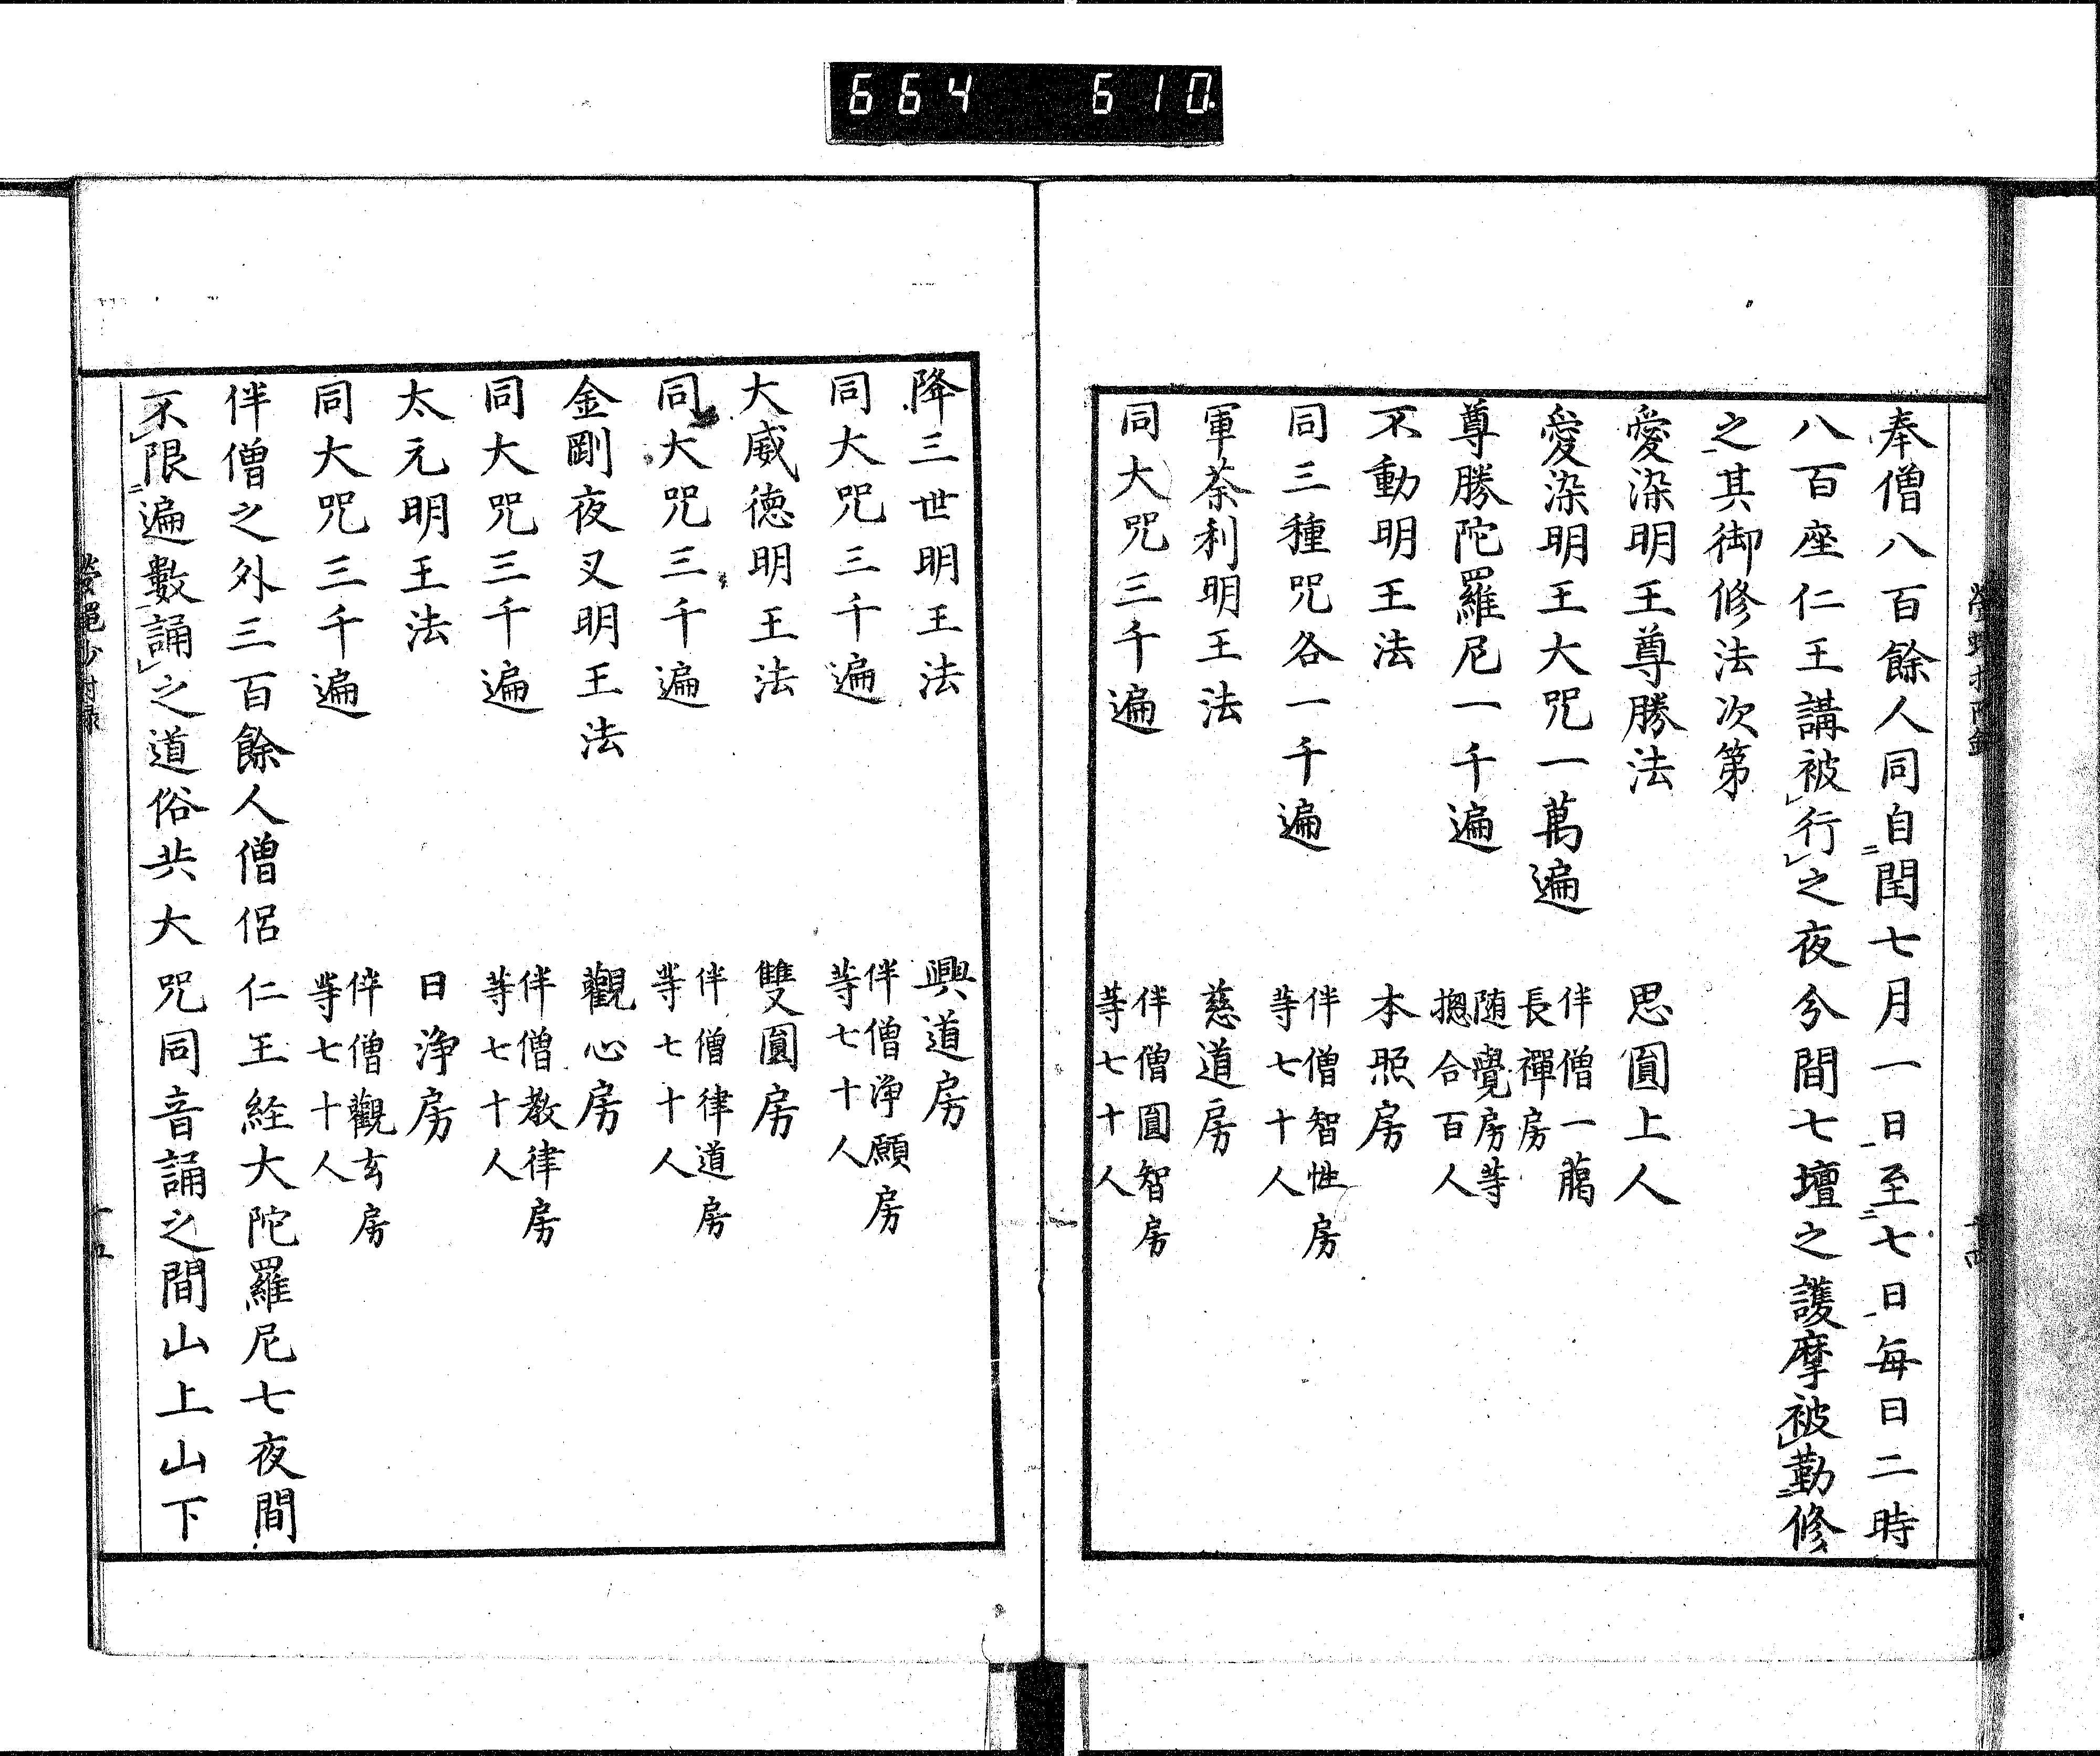 664 610
奉僧八百餘人同自二閏七月一日一至二七日一每日二時
八百座仁王講被レ行レ之夜分間七壇之護摩被レ勤二修
之一其御修法次第
愛染明王尊勝法 思圓上人
愛染明王大咒一萬遍 伴僧一﨟
長禪房
尊勝陀羅尼一千遍 随覺房等
摠合百人
不動明王法 本照房
同三種咒各一千遍 伴僧智性房
等七十人
軍荼利明王法 慈道房
同大咒三千遍 伴僧圓智房
等七十人
降三世明王法 興道房
同大咒三千遍 伴僧浄願房
等七十人
大威徳明王法 雙圓房
同大咒三千遍 伴僧律道房
等七十人
金剛夜叉明王法 觀心房
同大咒三千遍 伴僧教律房
等七十人
太元明王法 日浄房
同大咒三千遍 伴僧觀玄房
等七十人
伴僧之外三百餘人僧侶仁王経大陀羅尼七夜間
不レ限二遍數一誦レ之道俗共大咒同音誦之間山上山下